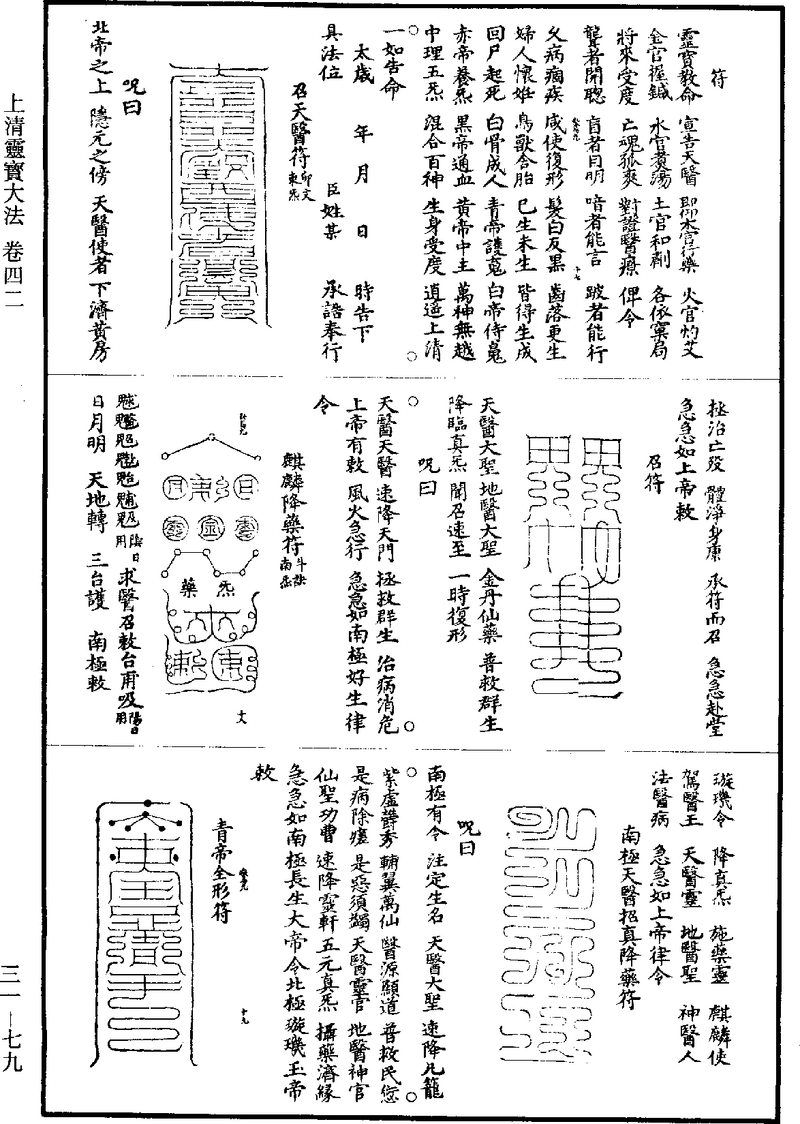 上清靈寶大法 卷四二
三一—七九
符
靈寶敕命 宣告天醫 即本官行藥 火官灼艾
金官握鍼 水官煮湯 土官和劑 各依窠局
將來受度 亡魂孤爽 對證醫療 俾令
聾者開聰 盲者目明 喑者能言 跛者能行
久病痼疾 咸使復形 髮白反黑 齒落更生
婦人懷妊 鳥獸含胎 已生未生 皆得生成
回尸起死 白骨成人 青帝護魂 白帝侍魄
赤帝養炁 黑帝通血 黃帝中主 萬神無越
中理五炁 混合百神 生身受度 逍遥上清
一如告命
太歲 年 月 日 時告下
具法位 臣姓某 承誥奉行
召天醫符
呪曰
北帝之上 隱元之傍 天醫使者 下濟黃房
拯治亡歿 體淨身康 承符而召 急急赴堂
急急如上帝敕
召符
天醫大聖 地醫大聖 金丹仙藥 普救群生
降臨真炁 聞召速至 一時復形
呪曰
天醫天醫 速降天門 拯救群生 治病消危
上帝有敕 風火急行 急急如南極好生律
令
麒麟降藥符
求醫召敕台甭吸
日月明 天地轉 三台護 南極敕
璇璣令 降真炁 施藥靈 麒麟使
駕醫王 天醫靈 地醫聖 神醫人
法醫病 急急如上帝律令
南極天醫招真降藥符
呪曰
南極有令 注定生名 天醫大聖 速降九籠
紫虛鬱秀 輔翼萬仙 醫源顯道 普救民愆
是病除痊 是惡須蠲 天醫靈官 地醫神官
仙聖功曹 速降靈軒 五元真炁 攝藥濟緣
急急如南極長生大帝令北極璇璣玉帝
敕
青帝全形符